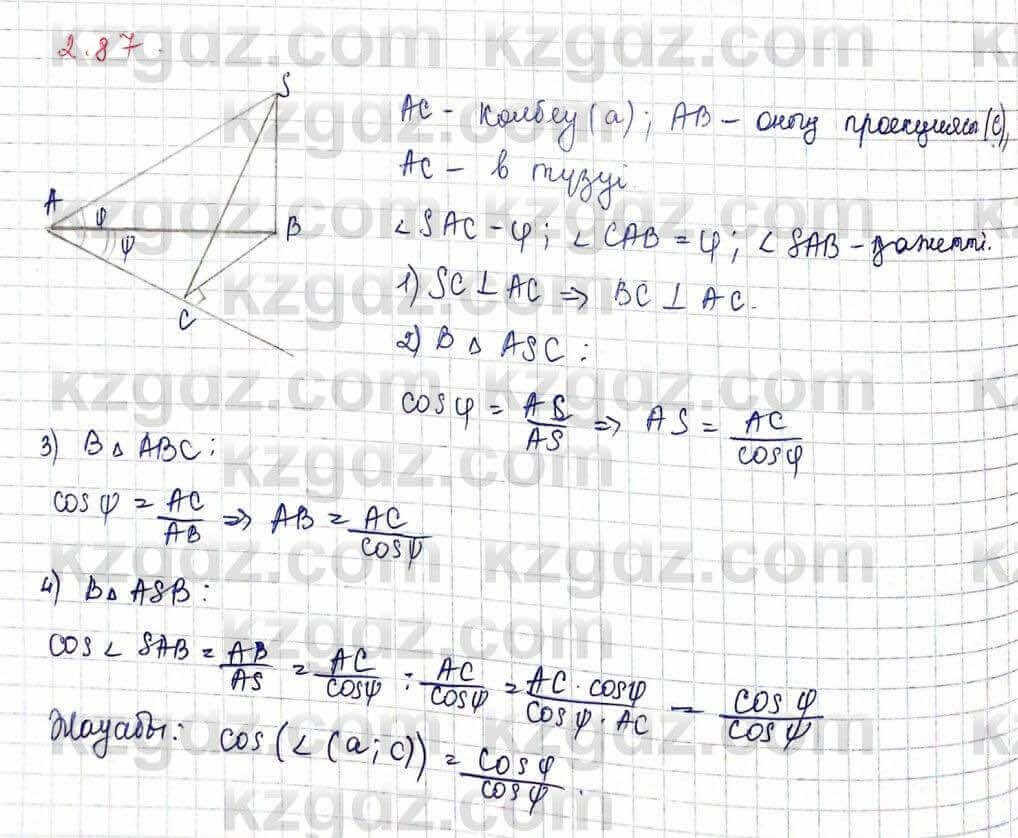 2.87.
S
A
φ
ψ
B
C
AC - колбеу (a); AB - оның проекциясы (c),
AC - в түзуі.
∠SAC - φ; ∠CAB = ψ; ∠SAB - қажетті.
1) SC ⊥ AC ⇒ BC ⊥ AC.
2) В △ ASC:
cos φ = AS/AS ⇒ AS = AC/cos φ
3) В △ ABC:
cos ψ = AC/AB ⇒ AB = AC/cos ψ
4) В △ ASB:
cos ∠ SAB = AB/AS = AC/cos ψ : AC/cos φ = AC · cos φ/cos ψ · AC = cos φ/cos ψ
Жауабы: cos (∠ (a; c)) = cos φ/cos ψ.
kzgdz.com